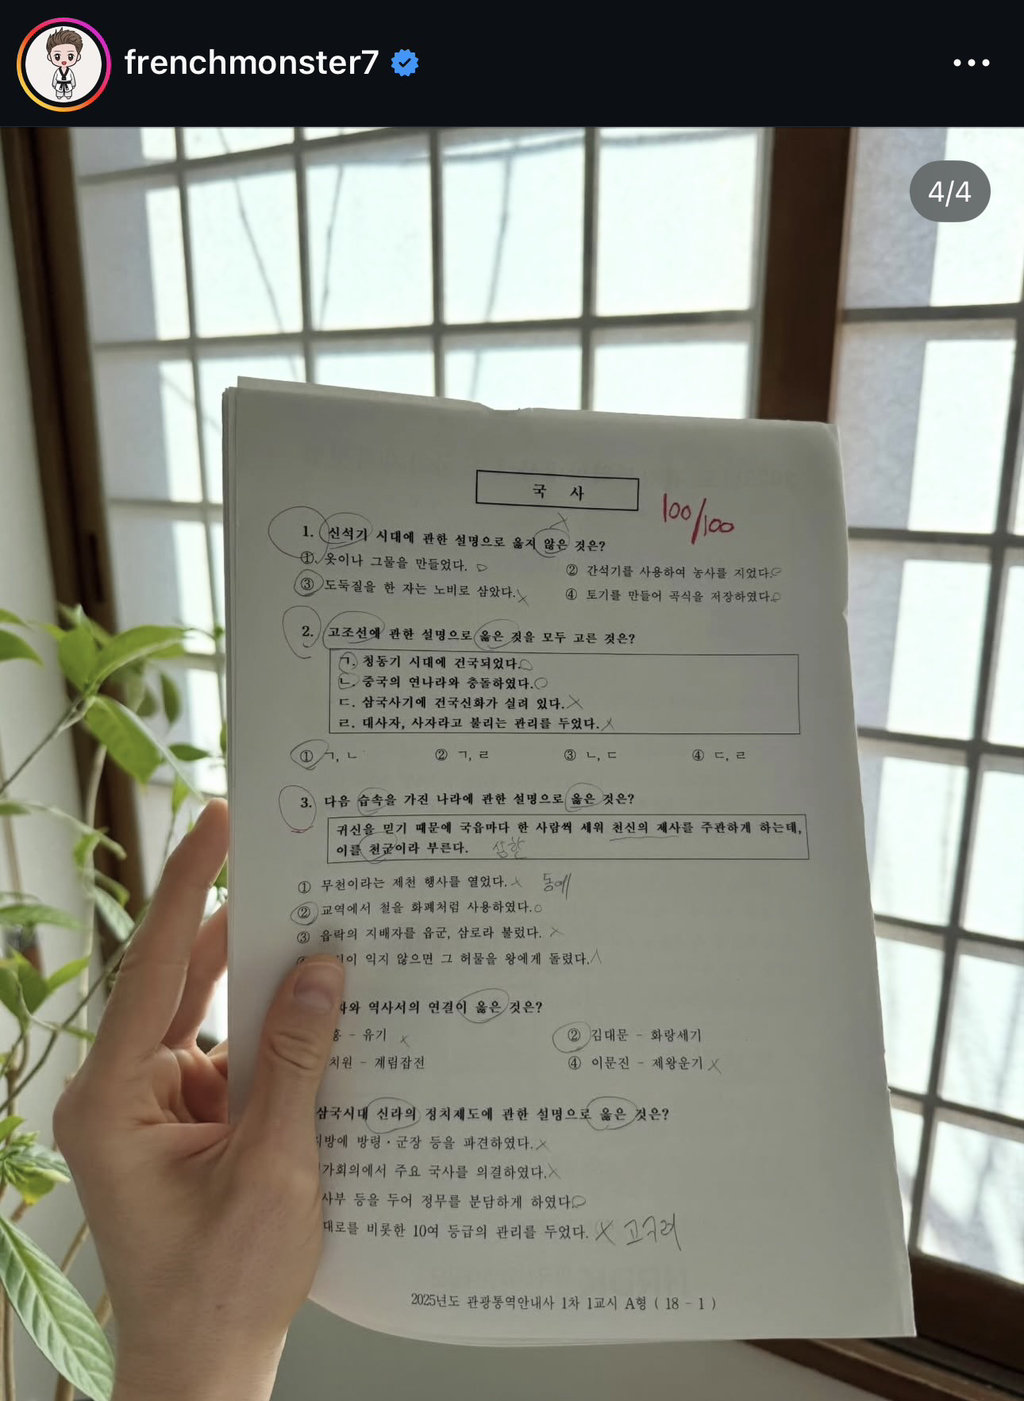 frenchmonster7
4/4
국 사
100/100
1. 신석기 시대에 관한 설명으로 옳지 않은 것은?
① 옷이나 그물을 만들었다.
② 간석기를 사용하여 농사를 지었다.
③ 도둑질을 한 자는 노비로 삼았다.
④ 토기를 만들어 곡식을 저장하였다.
2. 고조선에 관한 설명으로 옳은 것을 모두 고른 것은?
ㄱ. 청동기 시대에 건국되었다.
ㄴ. 중국의 연나라와 충돌하였다.
ㄷ. 삼국사기에 건국신화가 실려 있다.
ㄹ. 대사자, 사자라고 불리는 관리를 두었다.
① ㄱ, ㄴ ② ㄱ, ㄹ ③ ㄴ, ㄷ ④ ㄷ, ㄹ
3. 다음 습속을 가진 나라에 관한 설명으로 옳은 것은?
귀신을 믿기 때문에 국읍마다 한 사람씩 세워 천신의 제사를 주관하게 하는데,
이를 천군이라 부른다. 삼한
① 무천이라는 제천 행사를 열었다. 동예
② 교역에서 철을 화폐처럼 사용하였다.
③ 읍락의 지배자를 읍군, 삼로라 불렀다.
익지 않으면 그 허물을 왕에게 돌렸다.
역사서의 연결이 옳은 것은?
- 유기
② 김대문 - 화랑세기
치원 - 계림잡전
④ 이문진 - 제왕운기
삼국시대 신라의 정치제도에 관한 설명으로 옳은 것은?
방에 방령·군장 등을 파견하였다.
가회의에서 주요 국사를 의결하였다.
사부 등을 두어 정무를 분담하게 하였다.
대로를 비롯한 10여 등급의 관리를 두었다. 고구려
2025년도 관광통역안내사 1차 1교시 A형 ( 18 - 1 )